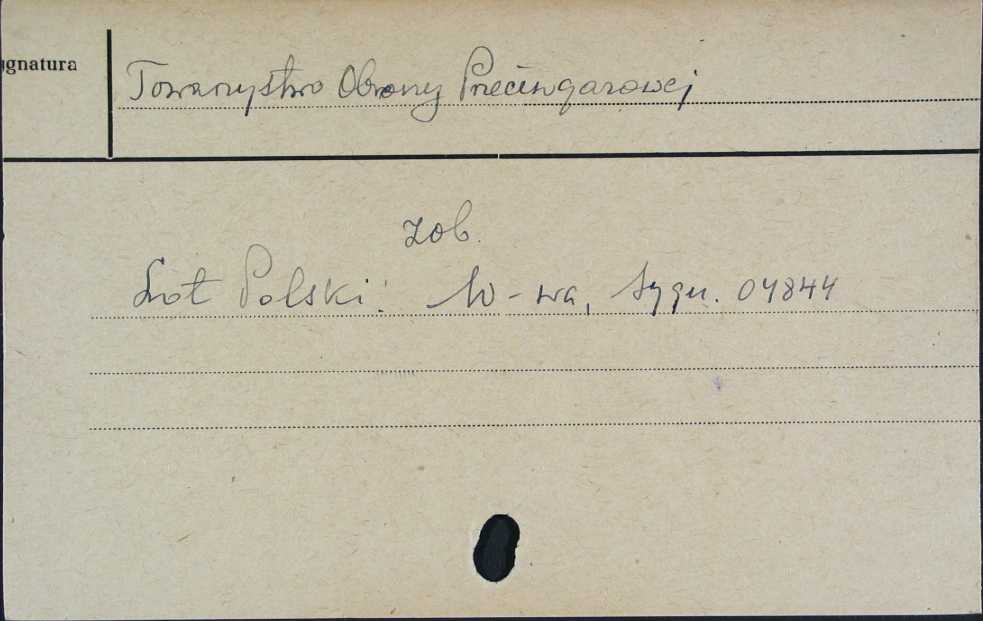 ygnatura
Towarzystwo Obrony Przeciwgazowej
zob.
Lot Polski. W-wa, sygn. 04844